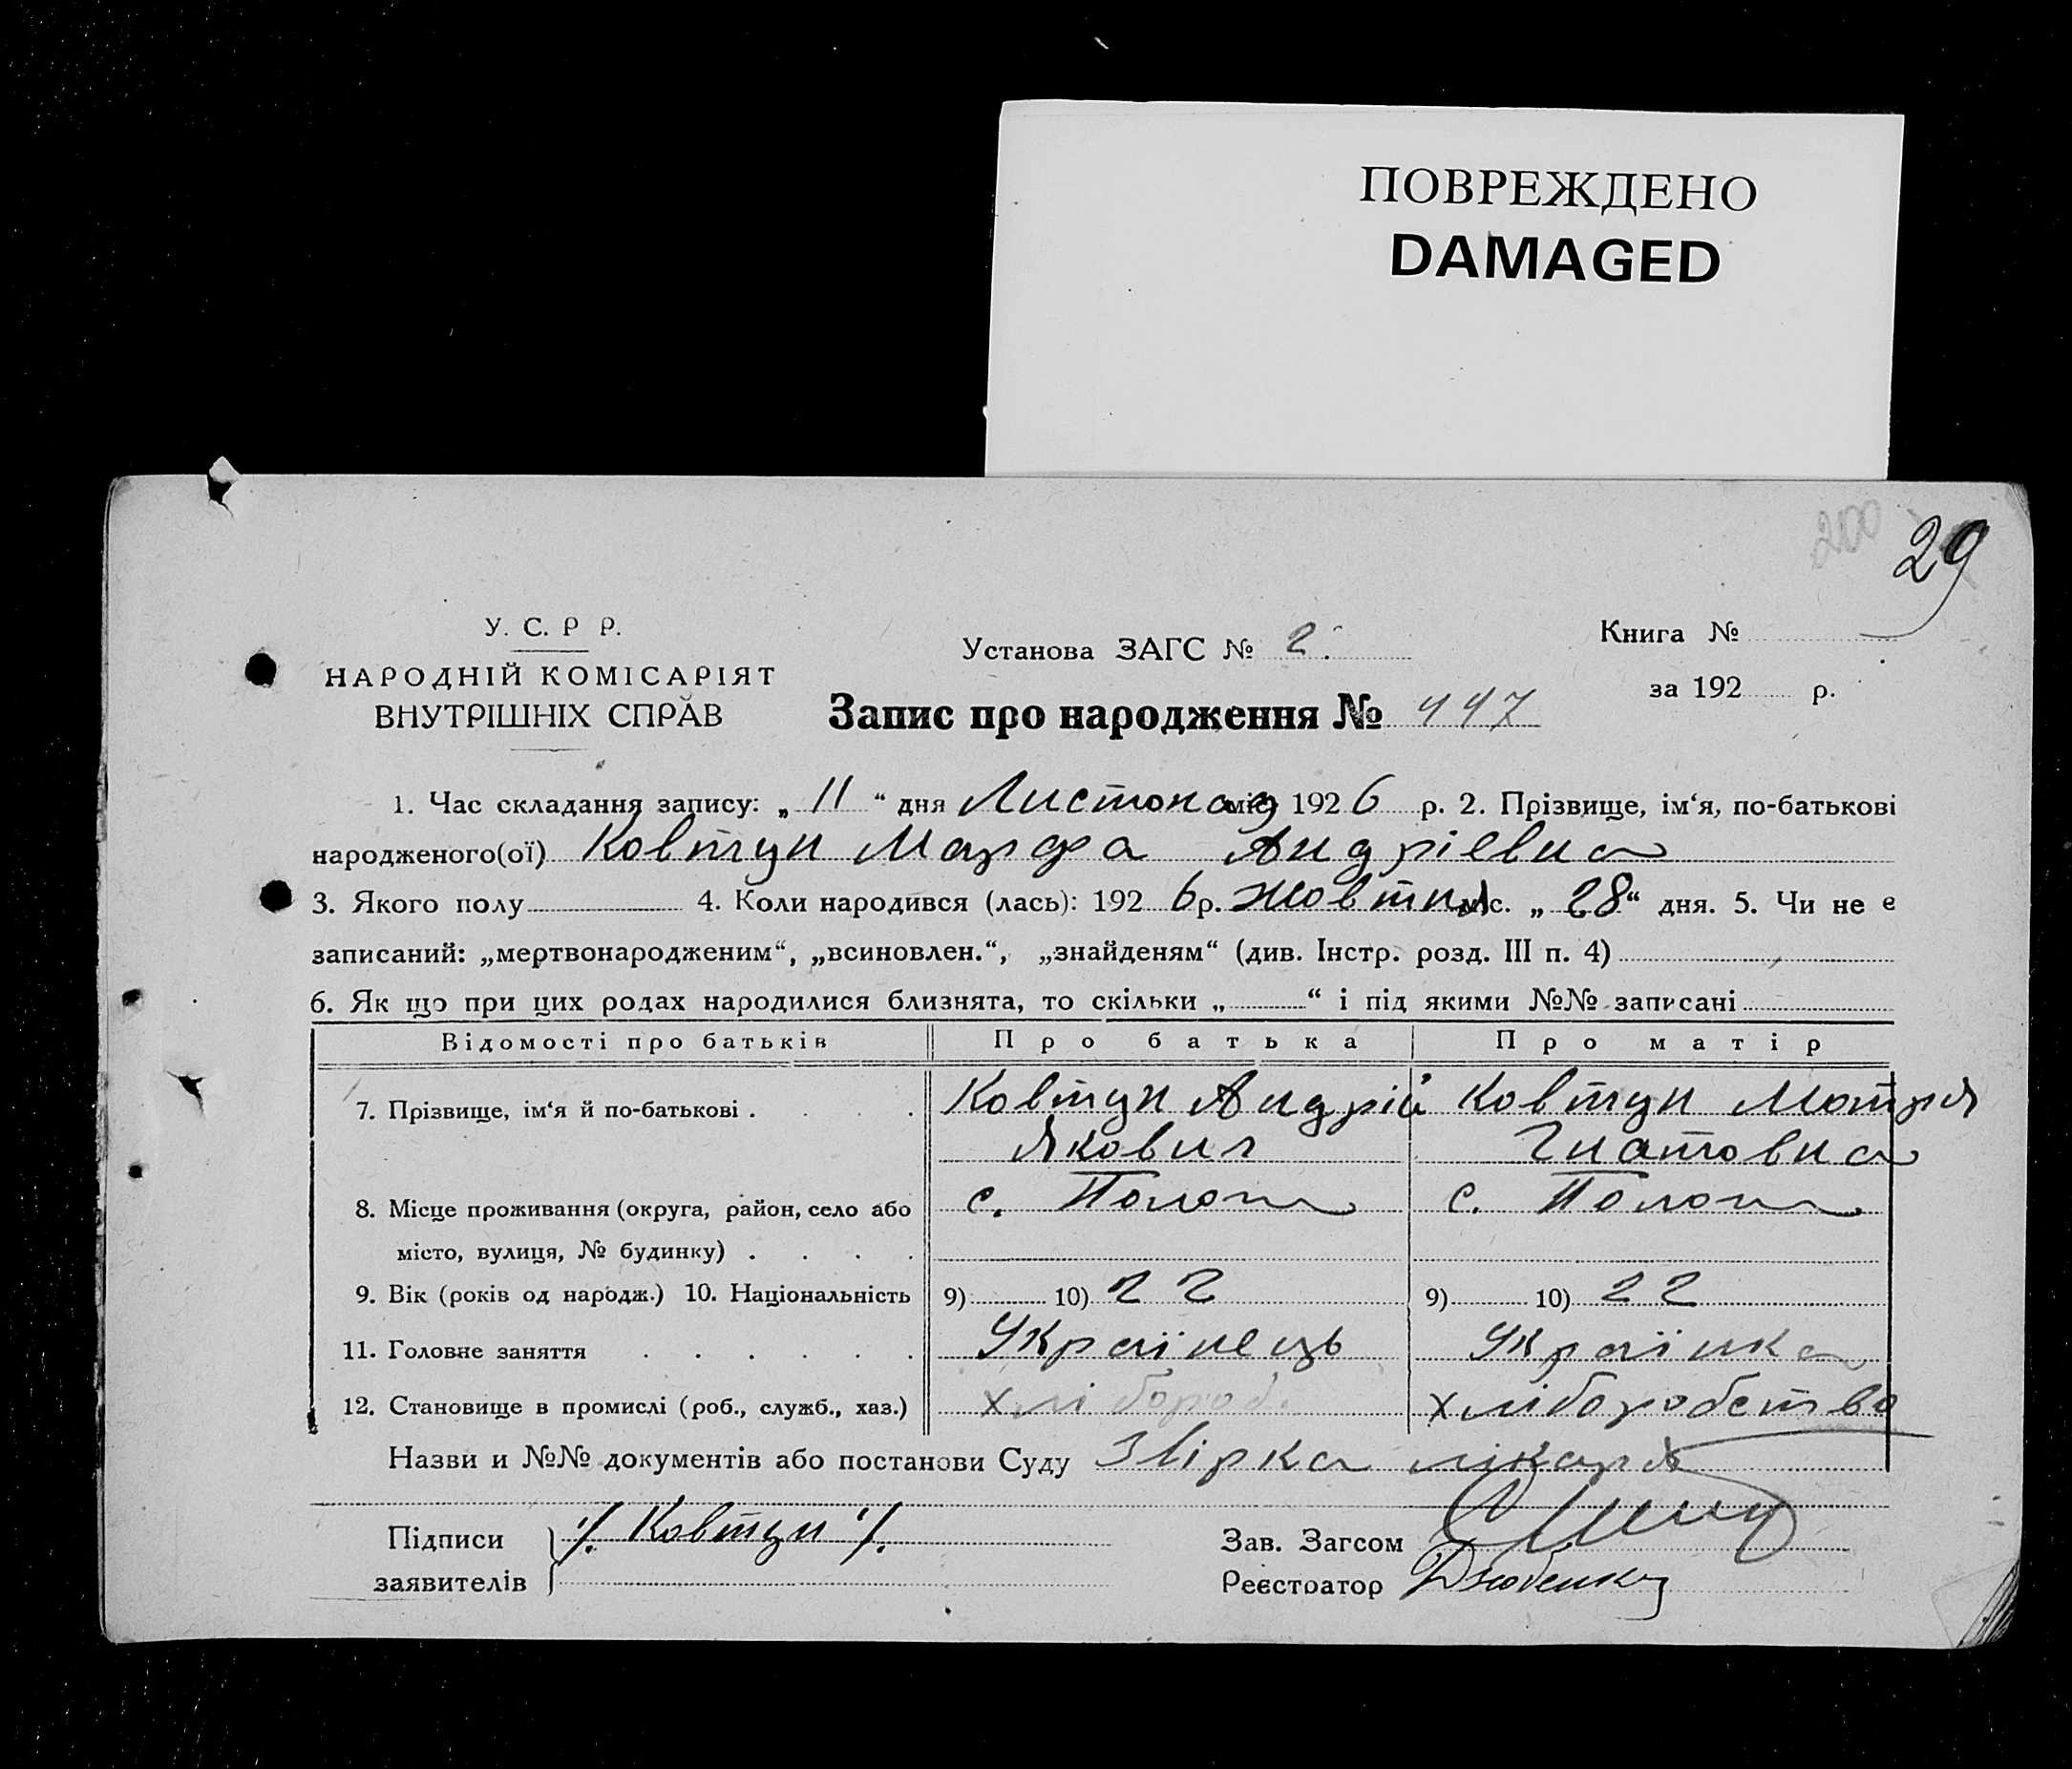 ПОВРЕЖДЕНО
DAMAGED
200
29
У. С. Р Р.
НАРОДНІЙ КОМІСАРІЯТ
ВНУТРІШНІХ СПРАВ
Установа ЗАГС № 2.
Книга №
за 192 р.
Запис про народження № 447
1. Час складання запису: „ 11 “ дня Листопад міс. 1926 р. 2. Прізвище, ім‘я, по-батькові
народженого(ої) Ковтун Марфа Андріевна
3. Якого полу 4. Коли народився (лась): 192 6 р. Жовтня міс. „ 28 “ дня. 5. Чи не е
записаний: „мертвонародженим“, „всиновлен.“, „знайденям“ (див. Інстр. розд. III п. 4)
6. Як що при цих родах народилися близнята, то скільки „ “ і під якими №№ записані
Відомості про батьків Про батька Про матір
7. Прізвище, ім‘я й по-батькові . . . . Ковтун Андрій Ковтун Мотря
Якович Гнатовна
8. Місце проживання (округа, район, село або с. Пологи с. Пологи
місто, вулиця, № будинку) . . . .
9. Вік (років од народж.) 10. Національність 9) 10) 22 9) 10) 22
11. Головне заняття . . . . . . Українець Українка
12. Становище в промислі (роб., служб., хаз.) хлібороб. хліборобство
Назви и №№ документів або постанови Суду Звірка лікаря
Підписи /. Ковтун /. Зав. Загсом
заявителів Реєстратор